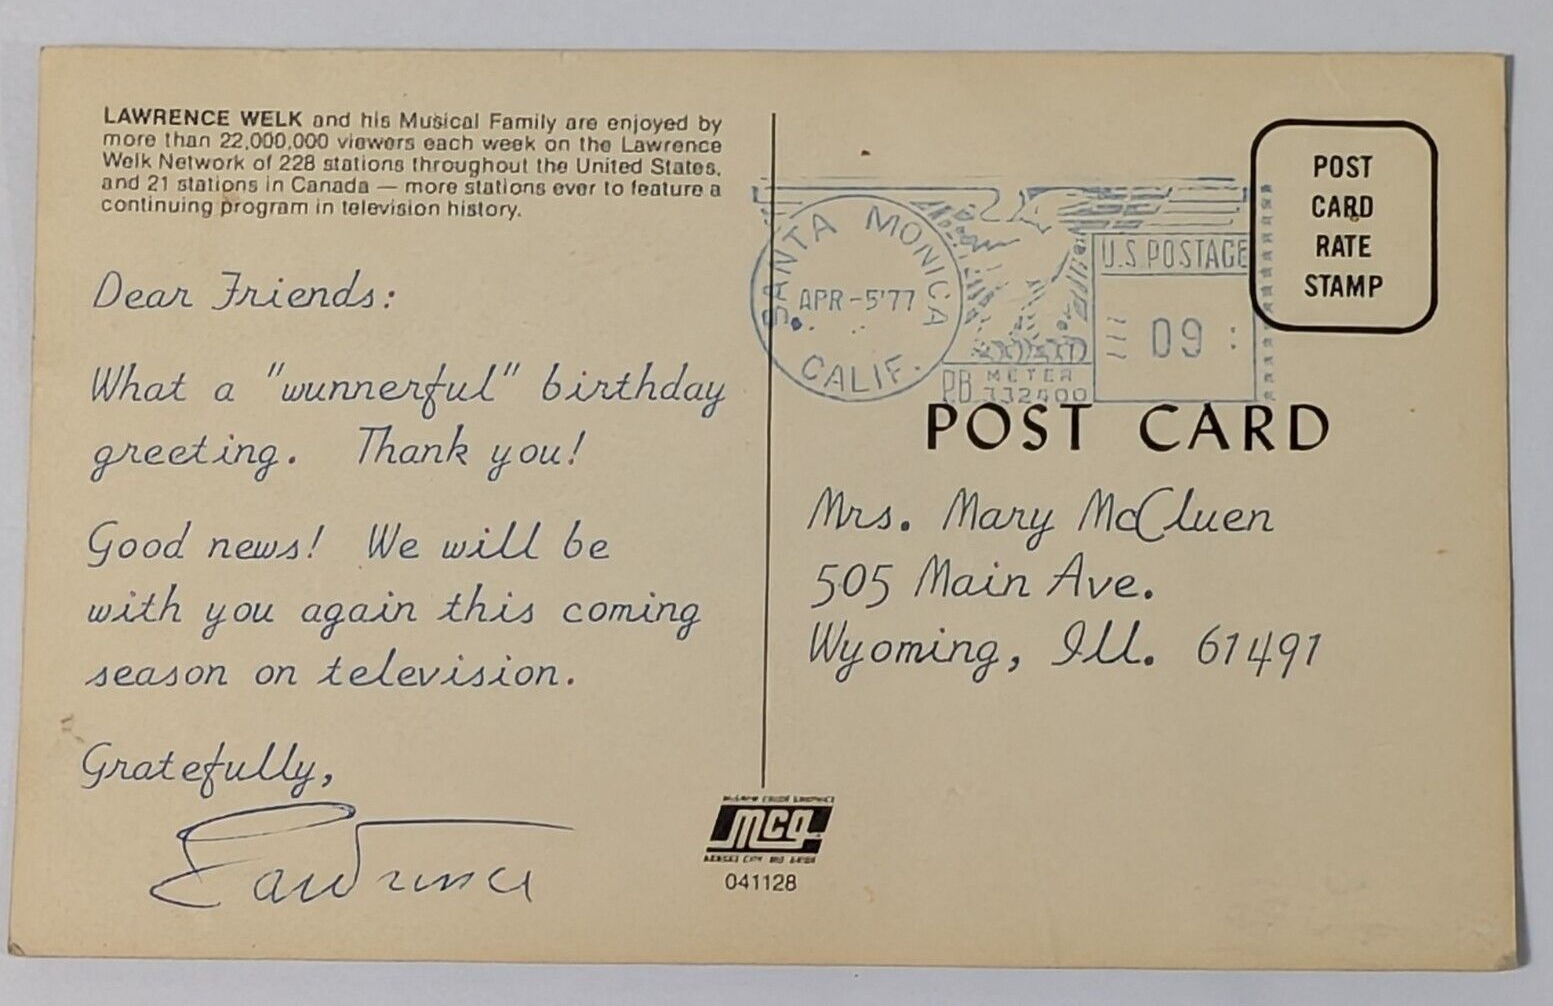 LAWRENCE WELK and his Musical Family are enjoyed by
more than 22,000,000 viewers each week on the Lawrence
Welk Network of 228 stations throughout the United States,
and 21 stations in Canada — more stations ever to feature a
continuing program in television history.
Dear Friends:
What a "wunnerful" birthday
greeting. Thank you!
Good news! We will be
with you again this coming
season on television.
Gratefully,
Lawrence
SANTA MONICA
APR-5'77
CALIF.
U.S. POSTAGE
09
PB METER
332400
POST
CARD
RATE
STAMP
POST CARD
Mrs. Mary McCluen
505 Main Ave.
Wyoming, Ill. 61491
mcg
KANSAS CITY, MO
041128